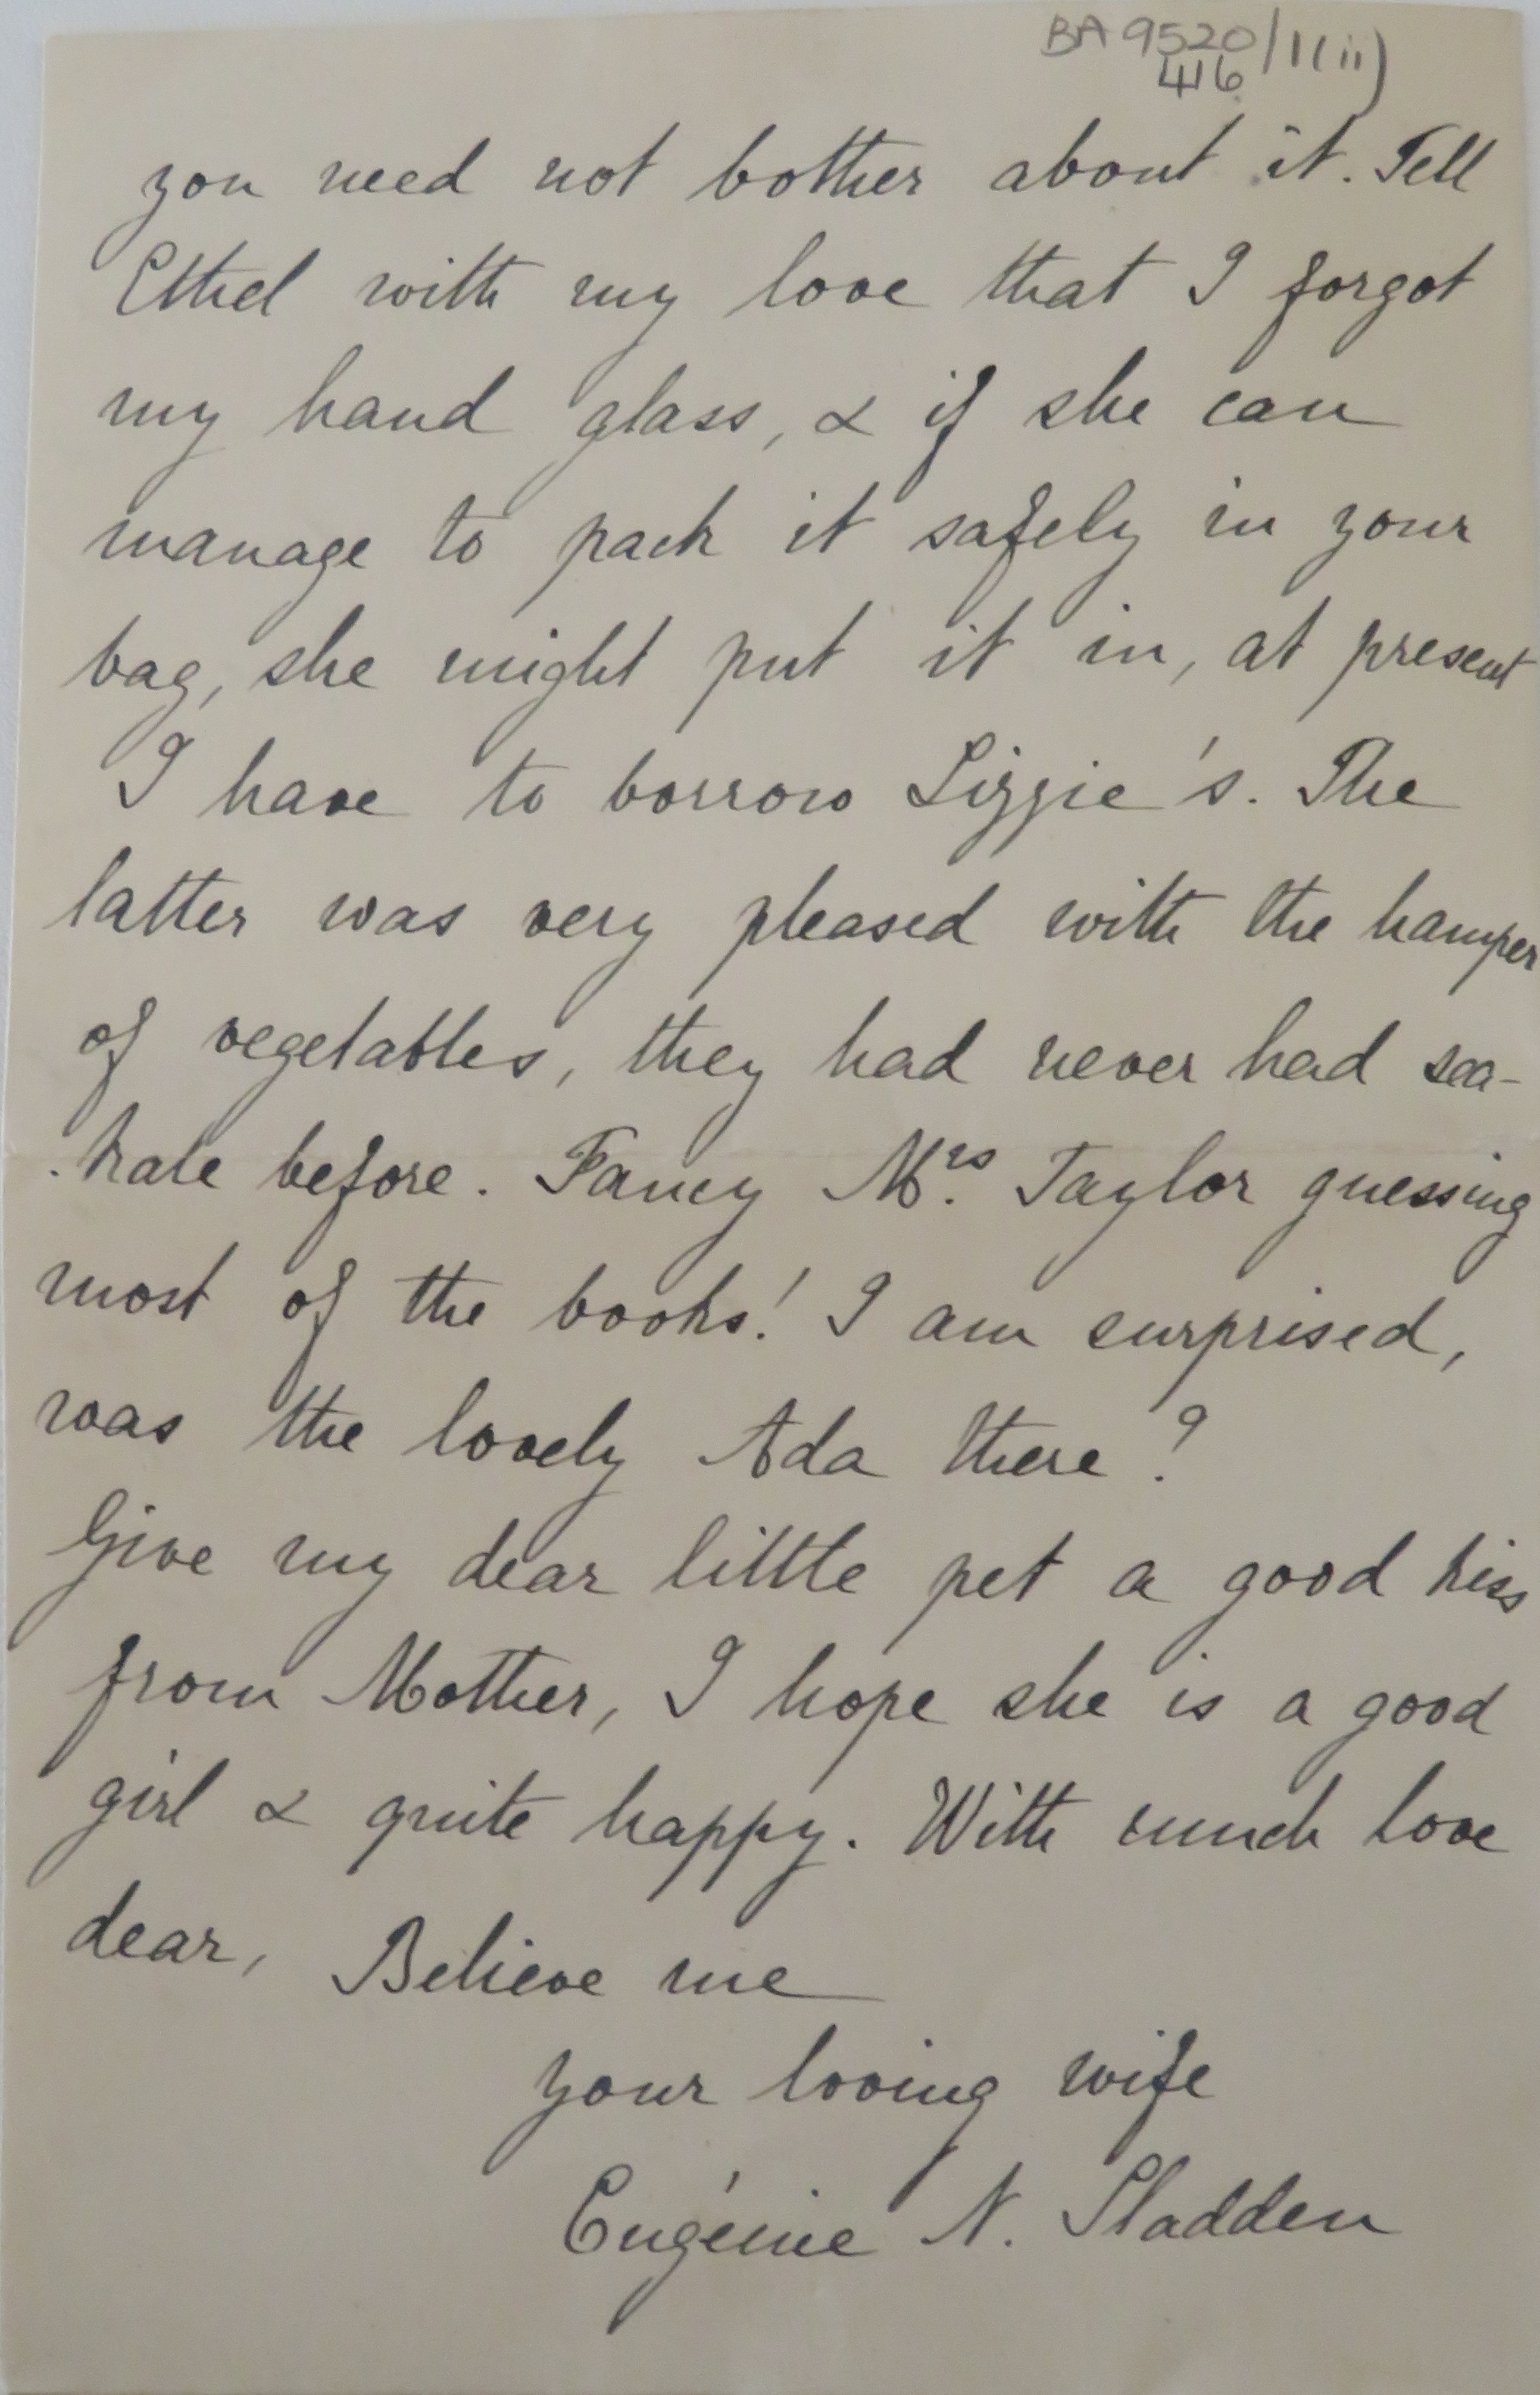 BA 9520/1(ii)
416
you need not bother about it. Tell
Ethel with my love that I forgot
my hand glass, & if she can
manage to pack it safely in your
bag, she might put it in, at present
I have to borrow Lizzie's. The
latter was very pleased with the hamper
of vegetables, they had never had sea-
-kale before. Fancy Mrs. Taylor guessing
most of the books! I am surprised,
was the lovely Ada there?
Give my dear little pet a good kiss
from Mother, I hope she is a good
girl & quite happy. With much love
dear, Believe me
your loving wife
Eugénie N. Sladden